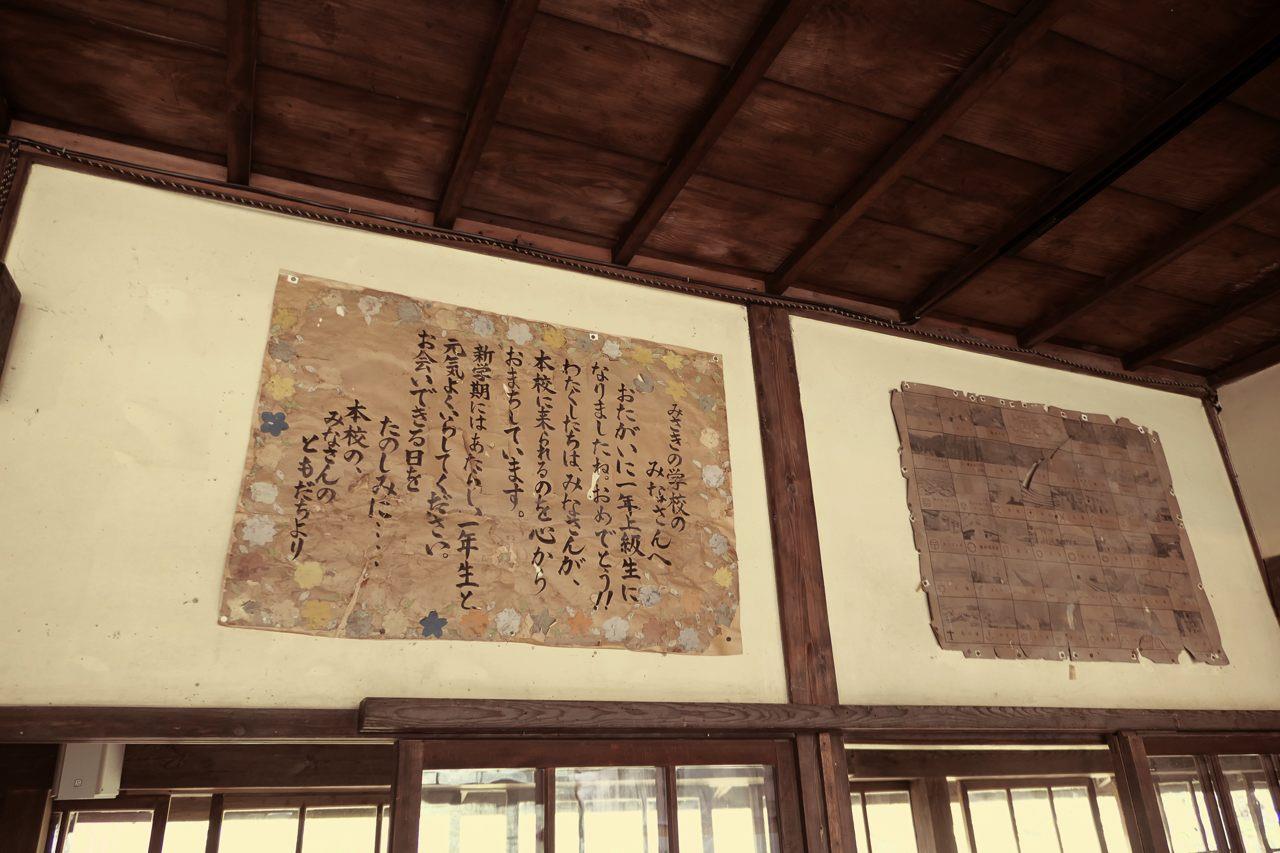 みさきの学校の
みなさんへ
おたがいに一年上級生に
なりましたね。おめでとう!!
わたくしたちは、みなさんが、
本校に来られるのを心から
おまちしています。
新学期にはあたらしい一年生と
元気よくいらしてください。
お会いできる日を
たのしみに・・・・
本校の、
みなさんの
ともだちより